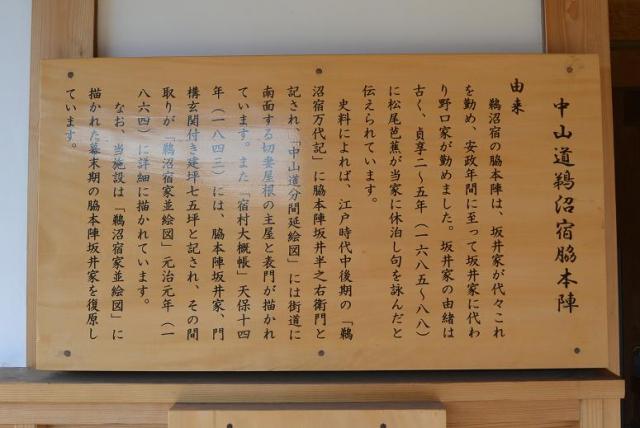 中山道鵜沼宿脇本陣
由来
鵜沼宿の脇本陣は、坂井家が代々これ
を勤め、安政年間に至って坂井家に代わ
り野口家が勤めました。坂井家の由緒は
古く、貞享二〜五年（一六八五〜八八）
に松尾芭蕉が当家に休泊し句を詠んだと
伝えられています。
史料によれば、江戸時代中後期の「鵜
沼宿万代記」に脇本陣坂井半之右衛門と
記され、「中山道分間延絵図」には街道に
南面する切妻屋根の主屋と表門が描かれ
ています。また「宿村大概帳」天保十四
年（一八四三）には、脇本陣坂井家、門
構玄関付き建坪七五坪と記され、その間
取りが「鵜沼宿家並絵図」元治元年（一
八六四）に詳細に描かれています。
なお、当施設は「鵜沼宿家並絵図」に
描かれた幕末期の脇本陣坂井家を復原し
ています。